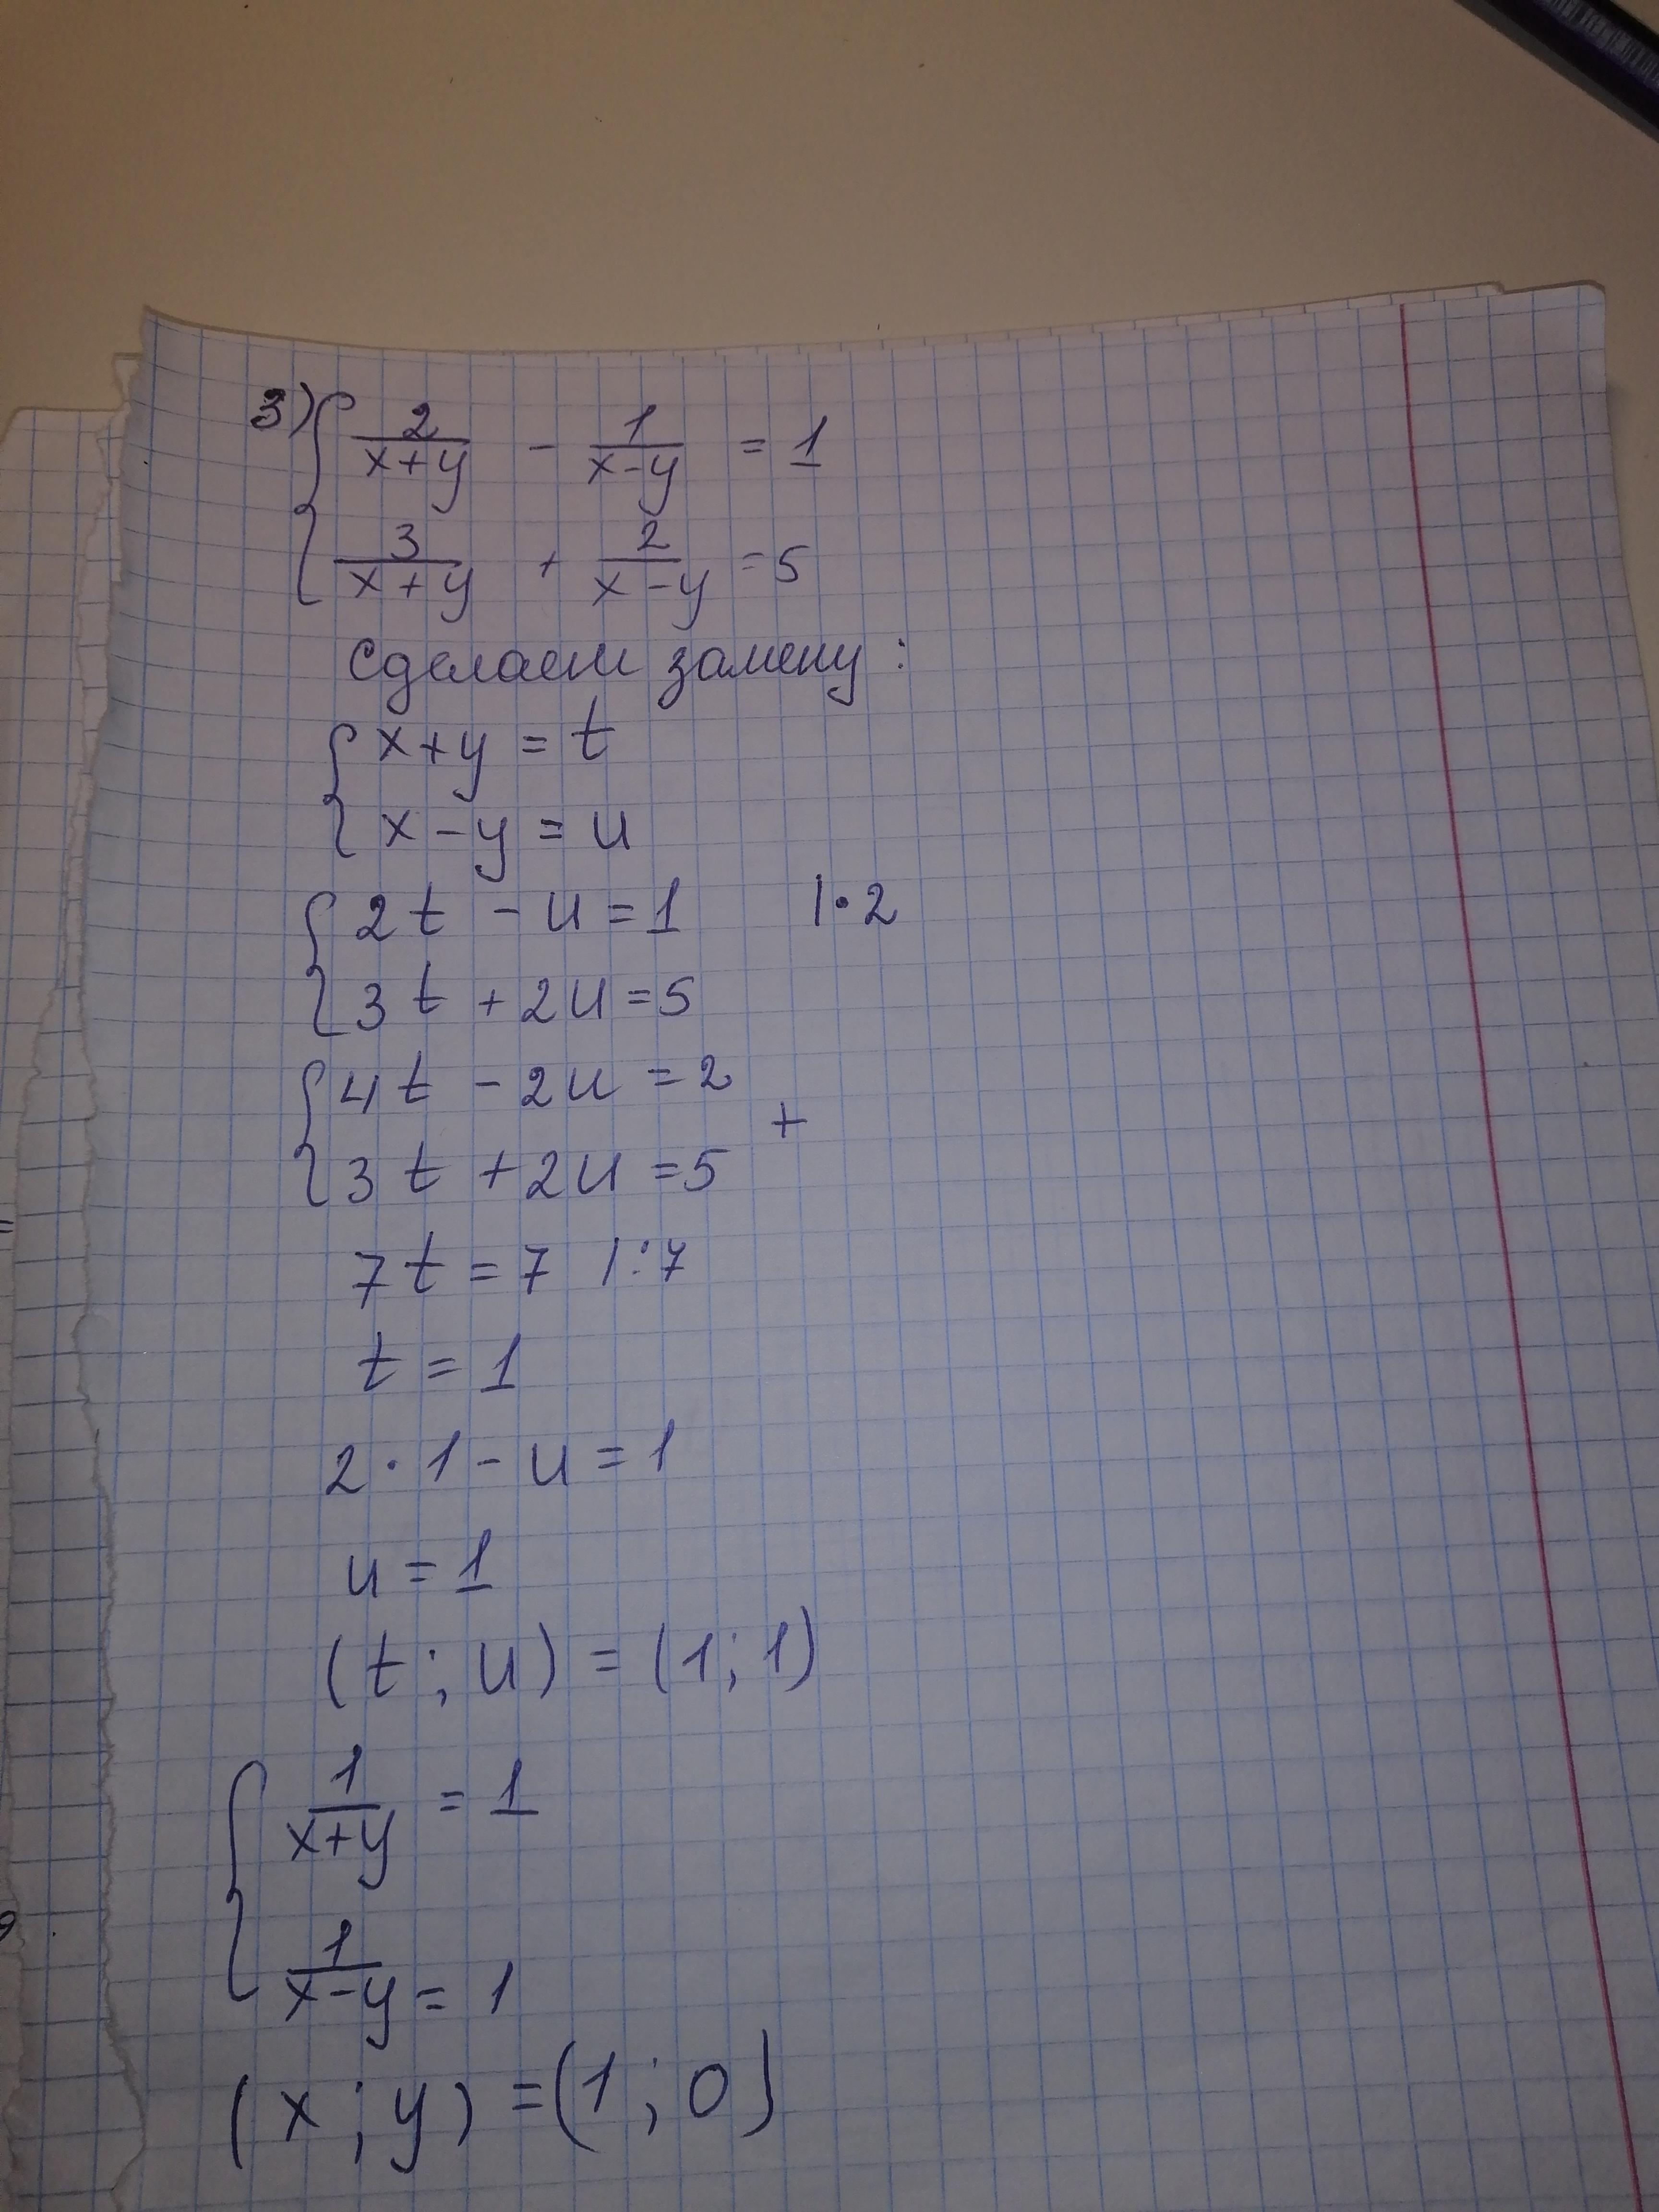 3) { 2/(x+y) - 1/(x-y) = 1
3/(x+y) + 2/(x-y) = 5
Сделаем замену:
{ x+y = t
x-y = u
{ 2t - u = 1 |·2
3t + 2u = 5
{ 4t - 2u = 2
+
3t + 2u = 5
7t = 7 |:7
t = 1
2·1 - u = 1
u = 1
(t; u) = (1; 1)
{ 1/(x+y) = 1
1/(x-y) = 1
(x; y) = (1; 0)